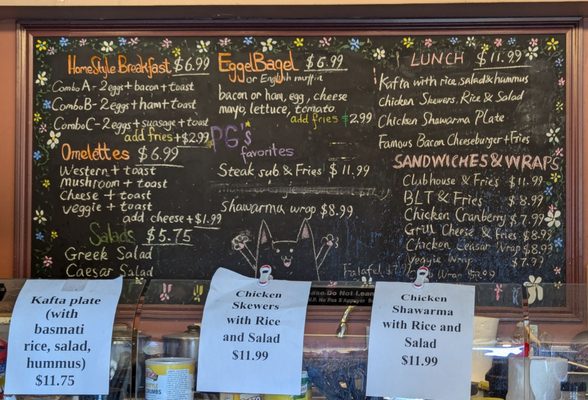 HomeStyle Breakfast $6.99
Combo A - 2 eggs + bacon + toast
Combo B - 2 eggs + ham + toast
Combo C - 2 eggs + suasage + toast
add fries + $2.99
Omelettes $6.99
Western + toast
mushroom + toast
cheese + toast
veggie + toast
add cheese + $1.99
Salads $5.75
Greek Salad
Caesar Salad
Egg Bagel $6.99
or English muffin
bacon or ham, egg, cheese
mayo, lettuce, tomato
add fries $2.99
PG's
favorites
Steak sub & Fries $11.99
Shawarma wrap $8.99
Falafel
LUNCH $11.99
Kafta with rice, salad & hummus
Chicken Skewers, Rice & Salad
Chicken Shawarma Plate
Famous Bacon Cheeseburger + Fries
SANDWICHES & WRAPS
Clubhouse & Fries $11.99
BLT & Fries $8.99
Chicken Cranberry $7.99
Grill Cheese & Fries $8.99
Chicken Ceasar Wrap $8.99
Veggie Wrap $7.99
Wrap
Please Do Not Lean
Kafta plate
(with
basmati
rice, salad,
hummus)
$11.75
Chicken
Skewers
with Rice
and Salad
$11.99
Chicken
Shawarma
with Rice and
Salad
$11.99